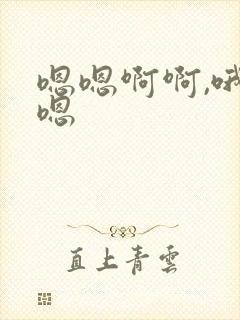 嗯嗯啊啊,哦
嗯
直上青雲